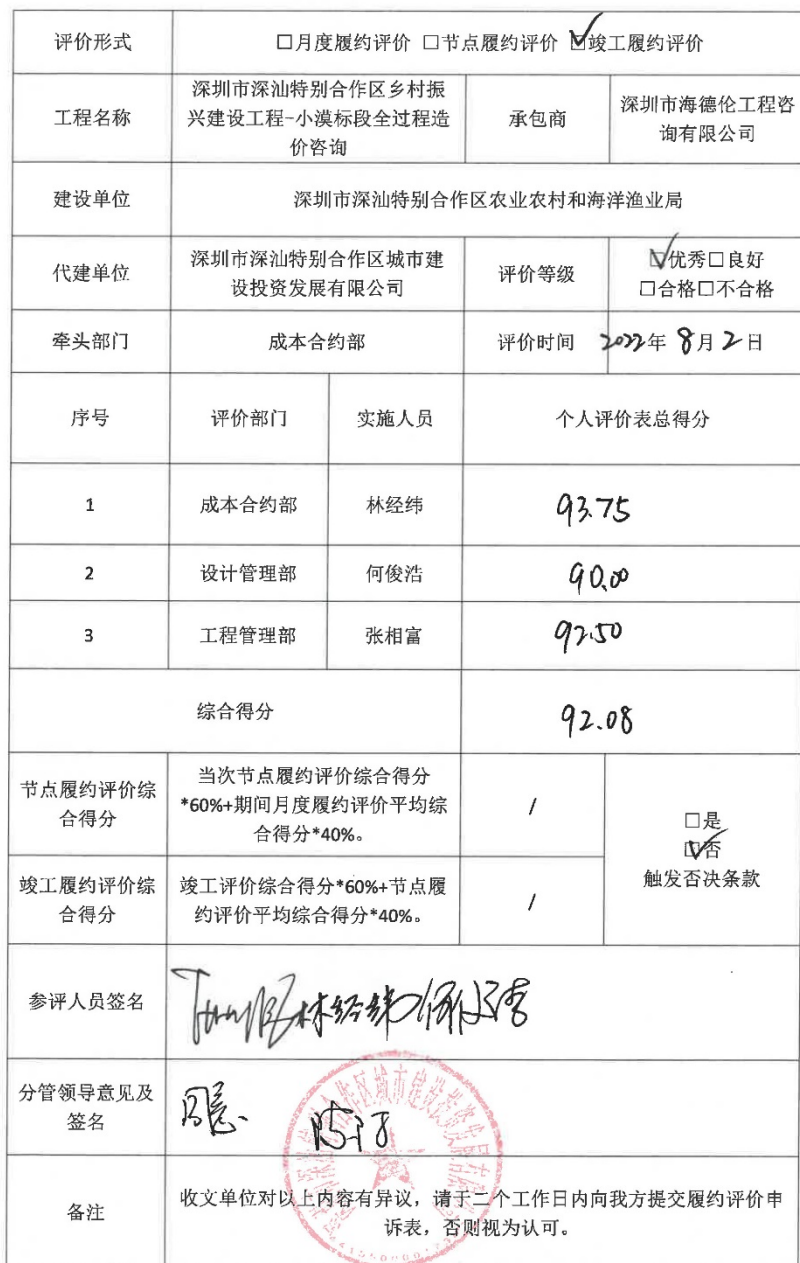 评价形式
□月度履约评价 □节点履约评价 ☑竣工履约评价
工程名称
深圳市深汕特别合作区乡村振
兴建设工程-小漠标段全过程造
价咨询
承包商
深圳市海德伦工程咨
询有限公司
建设单位
深圳市深汕特别合作区农业农村和海洋渔业局
代建单位
深圳市深汕特别合作区城市建
设投资发展有限公司
评价等级
☑优秀□良好
□合格□不合格
牵头部门
成本合约部
评价时间
2022年 8月2日
序号
评价部门
实施人员
个人评价表总得分
1
成本合约部
林经纬
93.75
2
设计管理部
何俊浩
90.00
3
工程管理部
张相富
92.50
综合得分
92.08
节点履约评价综
合得分
当次节点履约评价综合得分
*60%+期间月度履约评价平均综
合得分*40%。
/
□是
☑否
触发否决条款
竣工履约评价综
合得分
竣工评价综合得分*60%+节点履
约评价平均综合得分*40%。
/
参评人员签名
林经纬 何俊浩
分管领导意见及
签名
同意.
备注
收文单位对以上内容有异议，请于二个工作日内向我方提交履约评价申
诉表，否则视为认可。